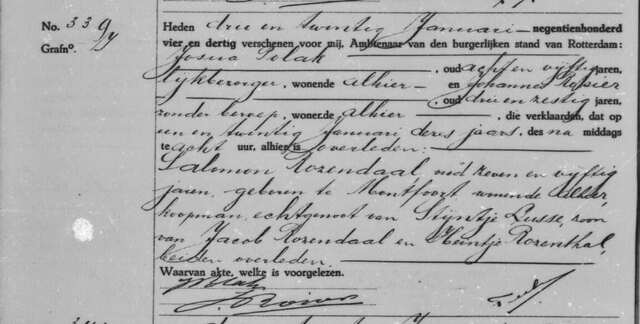 No. 339
Grafno.
Heden drie en twintig Januari negentienhonderd
vier en dertig verschenen voor mij, Ambtenaar van den burgerlijken stand van Rotterdam:
Josua Polak, oud acht en vijftig jaren,
lijkbezorger, wonende alhier en Johannes
zonder beroep, wonende alhier, oud drie en zestig jaren, die verklaarden, dat op
een en twintig Januari dezes jaars, des na middags
te acht uur, alhier is overleden:
Salomon Rozendaal, oud zeven en vijftig
jaren, geboren te Montfoort wonende alhier,
koopman, echtgenoot van Stijntje Lusse, zoon
van Jacob Rozendaal en Heintje Rozenthal,
beiden overleden.
Waarvan akte, welke is voorgelezen.